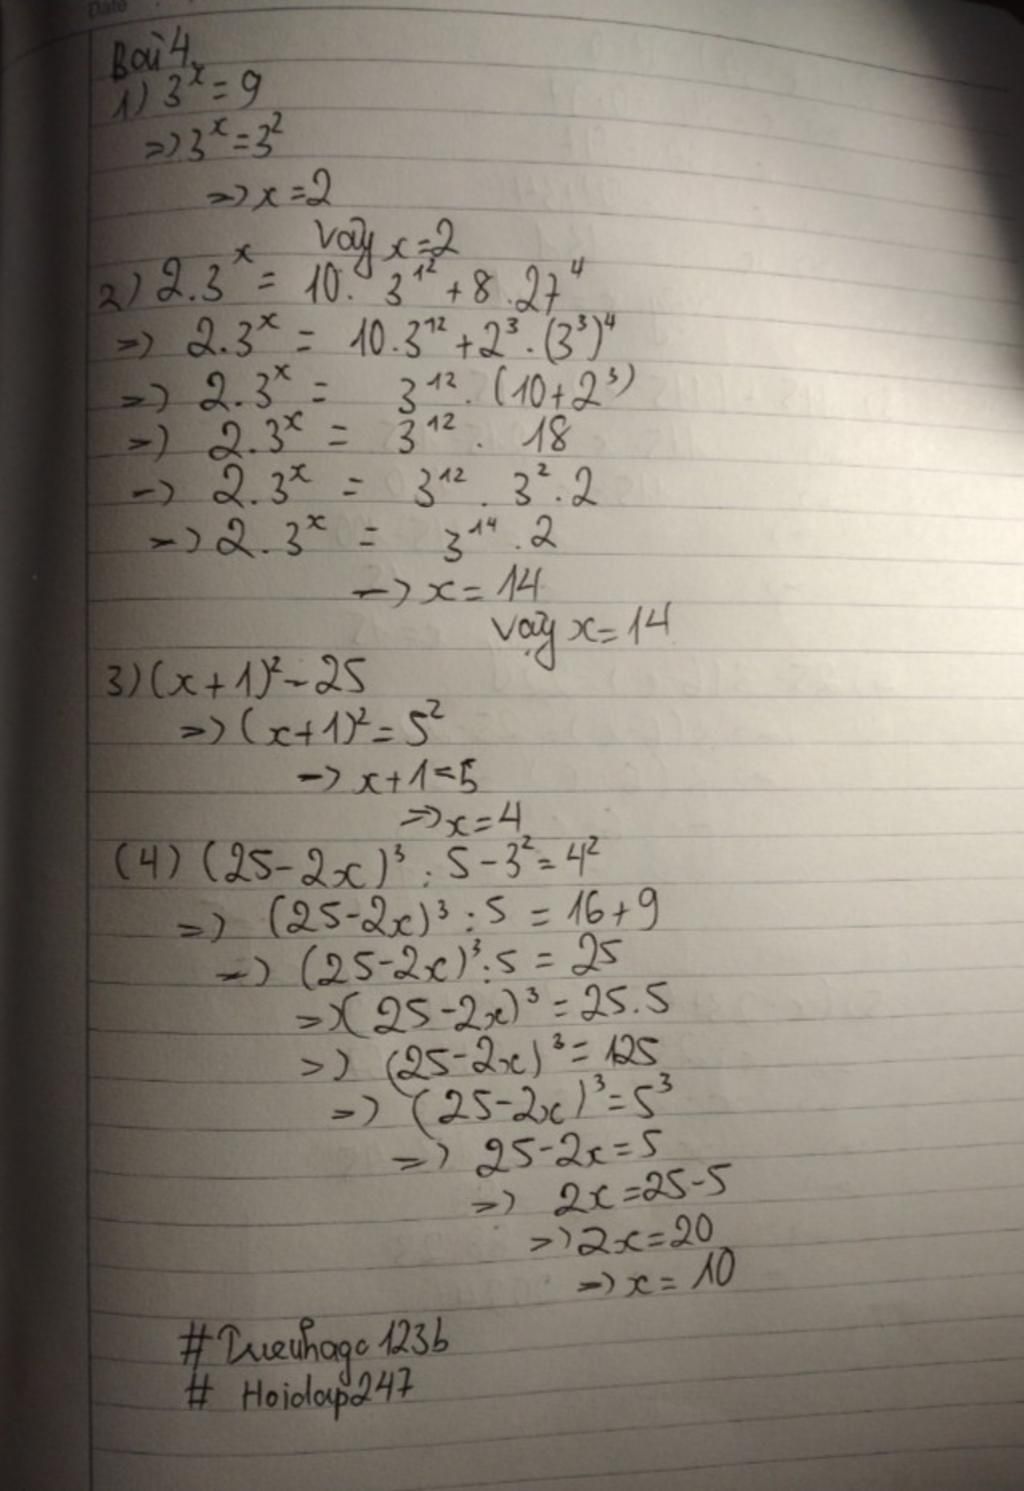 Date
Bài 4
1) 3^x = 9
=> 3^x = 3^2
=> x = 2
Vậy x = 2
2) 2.3^x = 10. 3^12 + 8 . 27^4
=> 2.3^x = 10.3^12 + 2^3 . (3^3)^4
=> 2.3^x = 3^12 . (10 + 2^3)
=> 2.3^x = 3^12 . 18
-> 2.3^x = 3^12 . 3^2 . 2
-> 2.3^x = 3^14 . 2
-> x = 14
Vậy x = 14
3) (x + 1)^2 - 25
=> (x + 1)^2 = 5^2
-> x + 1 = 5
=> x = 4
(4) (25 - 2x)^3 : 5 - 3^2 = 4^2
=> (25 - 2x)^3 : 5 = 16 + 9
-> (25 - 2x)^3 : 5 = 25
=> (25 - 2x)^3 = 25.5
=> (25 - 2x)^3 = 125
=> (25 - 2x)^3 = 5^3
=> 25 - 2x = 5
=> 2x = 25 - 5
=> 2x = 20
-> x = 10
# 1236
# Hoidap247